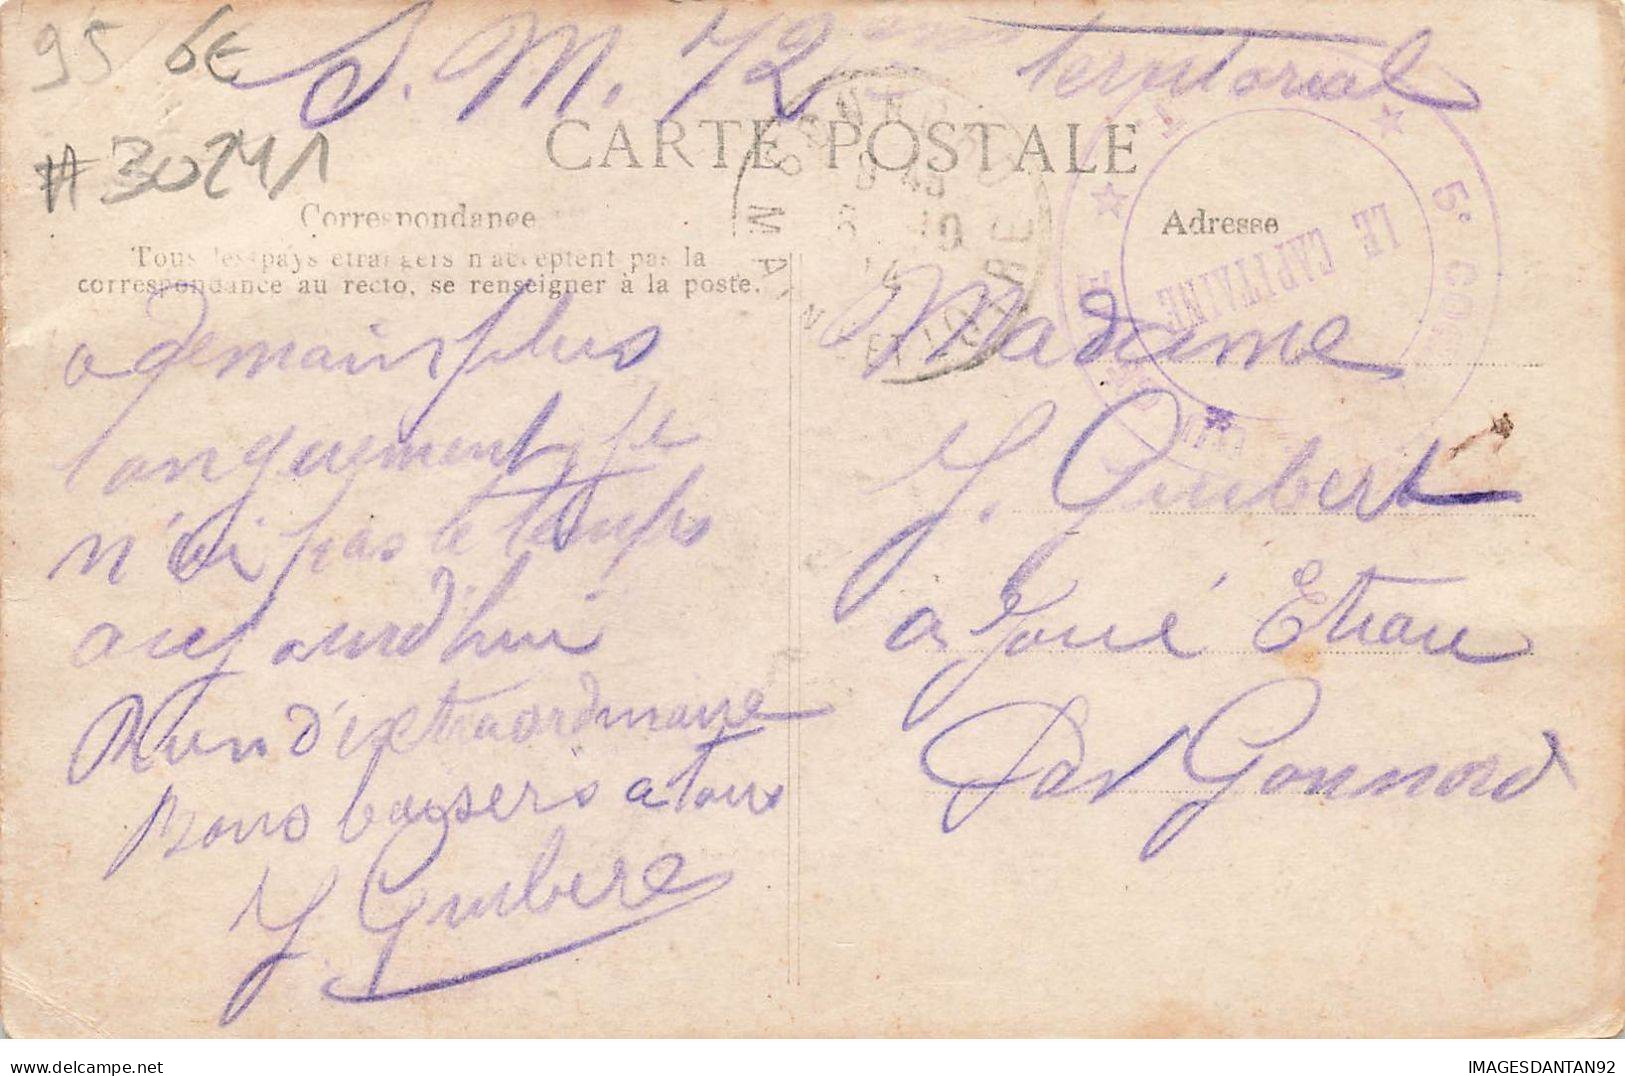 95 6€
#30241
S. M. 72ème territorial
CARTE POSTALE
Correspondance
Tous les pays étrangers n'acceptent pas la
correspondance au recto, se renseigner à la poste.
Adresse
5e
LE CAPITAINE
ET LOIRE
a demain plus
longuement, je
n'ai pas le temps
aujourd'hui
Rien d'extraordinaire
Bons baisers a tous
J Guibert
Madame
J. Guibert
a Joué Etiau
Par Gonnord
IMAGESDANTAN92